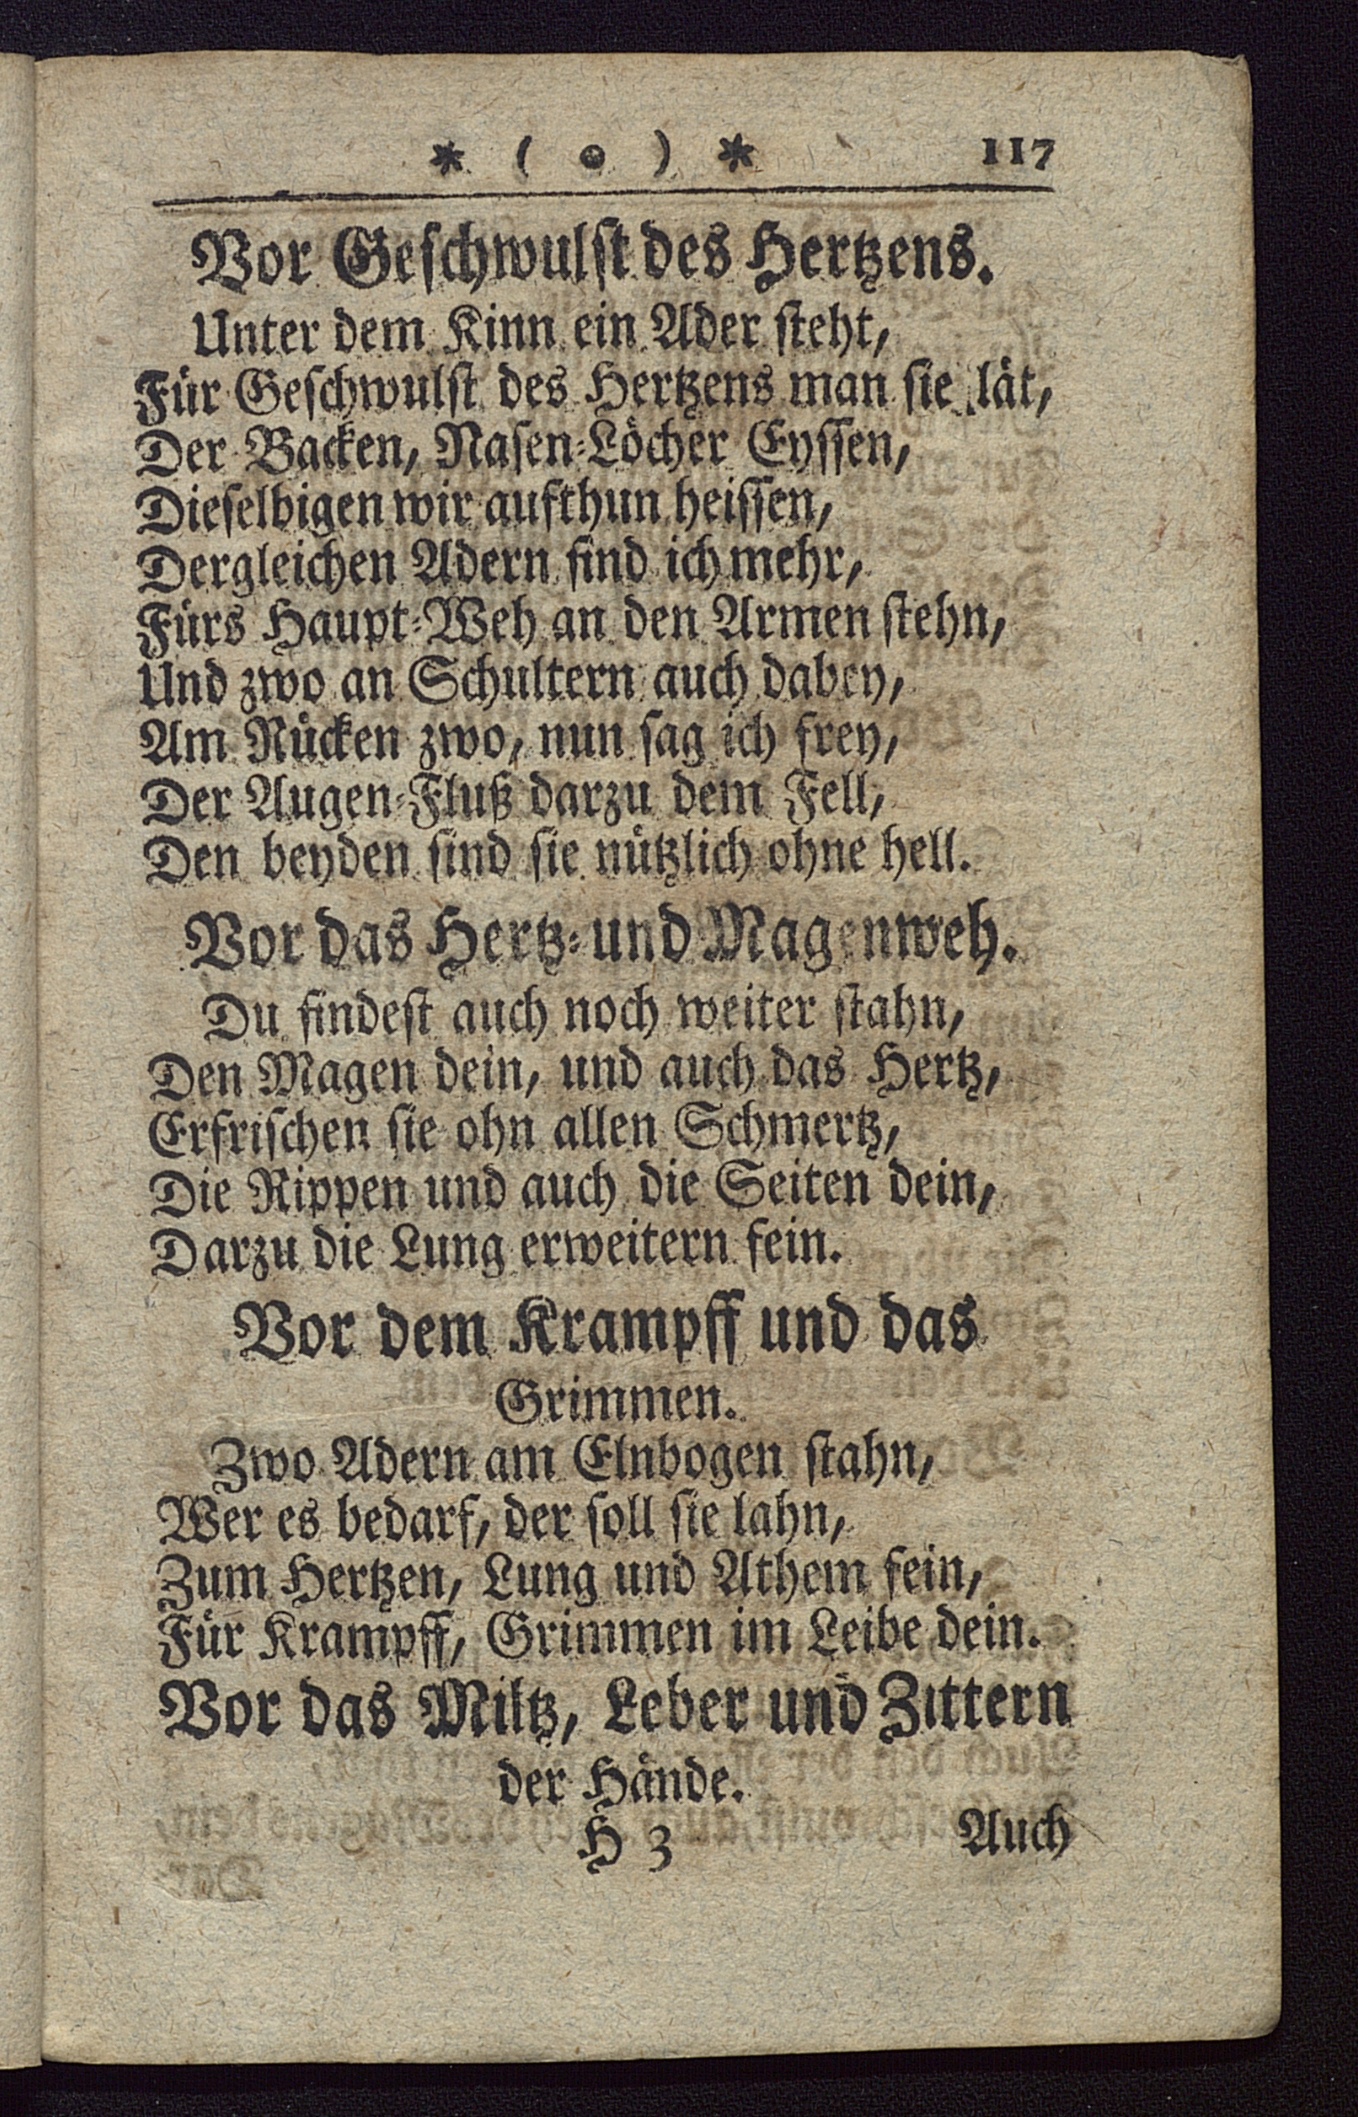 * ( o ) * 117
Vor Geschwulst des Hertzens.
Unter dem Kinn ein Ader steht,
Für Geschwulst des Hertzens man sie lät,
Der Backen, Nasen-Löcher Eyssen,
Dieselbigen wir aufthun heissen,
Dergleichen Adern find ich mehr,
Fürs Haupt-Weh an den Armen stehn,
Und zwo an Schultern auch dabey,
Am Rücken zwo, nun sag ich frey,
Der Augen-Fluß darzu dem Fell,
Den beyden sind sie nützlich ohne hell.
Vor das Hertz- und Magenweh.
Du findest auch noch weiter stahn,
Den Magen dein, und auch das Hertz,
Erfrischen sie ohn allen Schmertz,
Die Rippen und auch die Seiten dein,
Darzu die Lung erweitern fein.
Vor dem Krampff und das
Grimmen.
Zwo Adern am Elnbogen stahn,
Wer es bedarf, der soll sie lahn,
Zum Hertzen, Lung und Athem fein,
Für Krampff, Grimmen im Leibe dein.
Vor das Miltz, Leber und Zittern
der Hände.
H 3 Auch